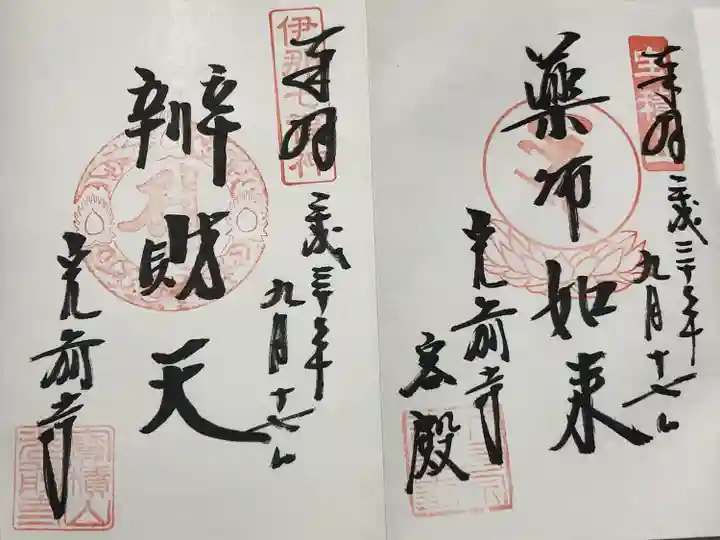 奉拝
平成三十年
九月十七日
薬師如来
光前寺
客殿
伊那七福神
奉拝
平成三十年
九月十七日
辨財天
光前寺